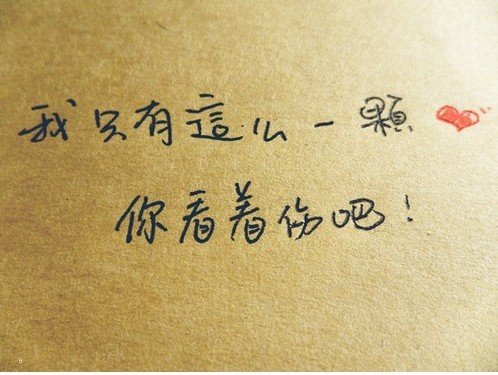 我只有這么一顆❤
你看着伤吧!